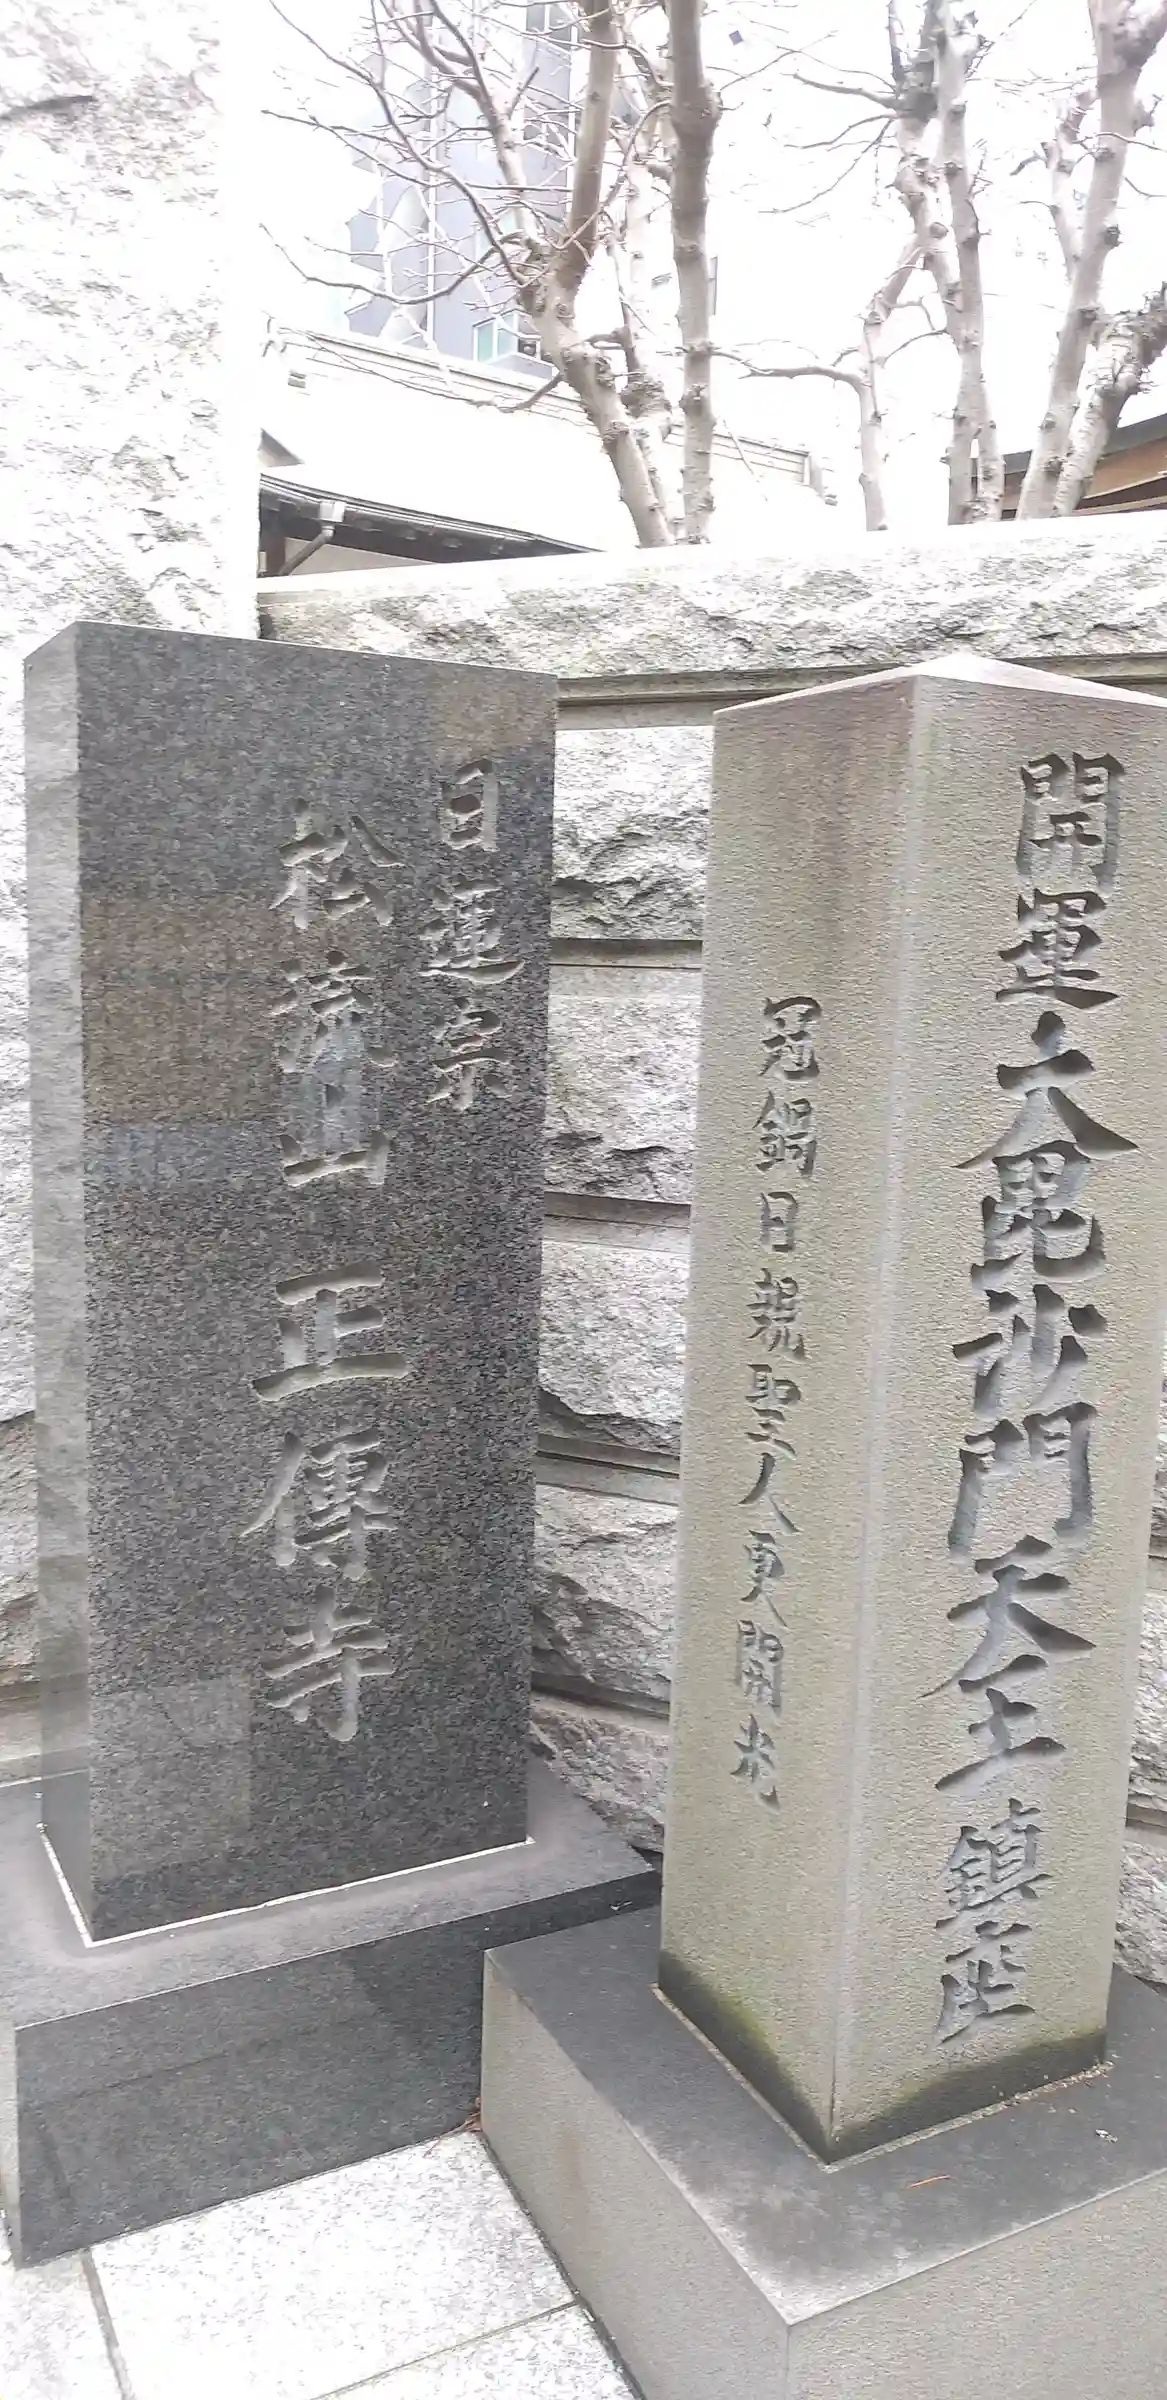 開運大毘沙門天王鎮座
冠鍋日親聖人更開光
日蓮宗
松流山正傳寺